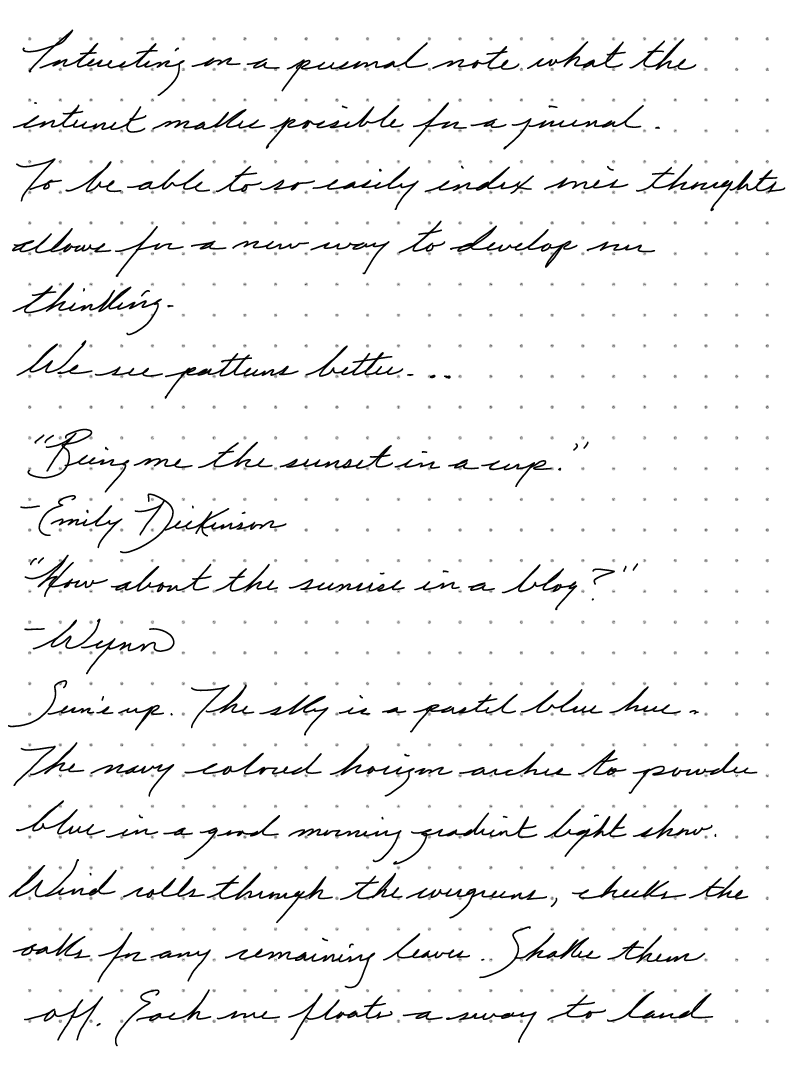 Interesting on a personal note what the
internet makes possible for a journal.
To be able to so easily index one's thoughts
allows for a new way to develop our
thinking.
We see patterns better...
"Bring me the sunset in a cup."
-Emily Dickinson
"How about the sunrise in a blog?"
-Wynn
Sun's up. The sky is a pastel blue hue.
The navy colored horizon arches to powder
blue in a good morning gradient light show.
Wind rolls through the evergreens, checks the
oaks for any remaining leaves. Shakes them
off. Each one floats a sway to land